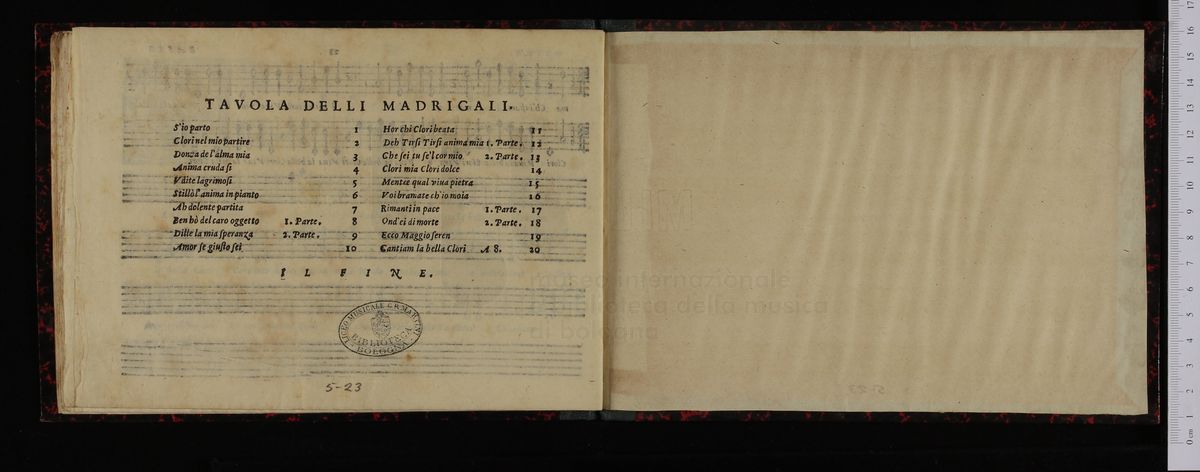 TAVOLA DELLI MADRIGALI.
S'io parto 1
Clori nel mio partire 2
Donza de l'alma mia 3
Anima cruda sì 4
Vdite lagrimosi 5
Stillò l'anima in pianto 6
Ah dolente partita 7
Ben hò del caro oggetto 1. Parte. 8
Dille la mia speranza 2. Parte. 9
Amor se giusto sei 10
Hor chi Clori beata 11
Deh Tirsi Tirsi anima mia 1. Parte. 12
Che sei tu se'l cor mio 2. Parte. 13
Clori mia Clori dolce 14
Mentre qual viua pietra 15
Voi bramate ch'io moia 16
Rimanti in pace 1. Parte. 17
Ond'ei di morte 2. Parte. 18
Ecco Maggio seren 19
Cantiam la bella Clori A 8. 20
IL FINE.
LICEO MUSICALE G.B. MARTINI
BIBLIOTECA
BOLOGNA
5-23
museo internazionale
e biblioteca della musica
di bologna
0 cm 1 2 3 4 5 6 7 8 9 10 11 12 13 14 15 16 17